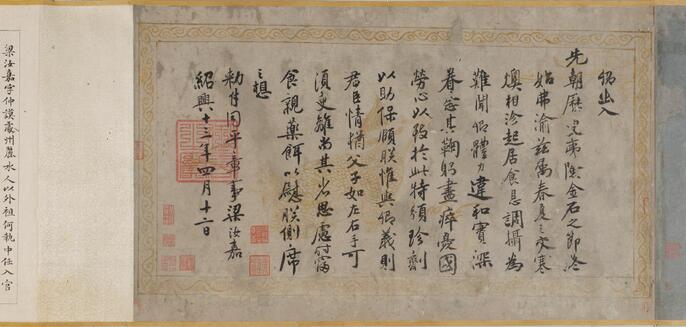 卿出入
先朝歷夷險金石之節終
始弗渝茲屬春夏之交寒
燠相沴起居食息調攝為
難聞卿體力違和實深
眷念其鞠躬盡瘁憂國
勞心以致於此特頒珍劑
以助保頤朕惟與卿義則
君臣情猶父子如左右手可
須臾離尚其省思慮時
食親藥餌以慰朕側席
之想
敕付同平章事梁汝嘉
紹興十三年四月十二日
梁汝嘉字仲謨處州麗水人以外祖何執中任入官